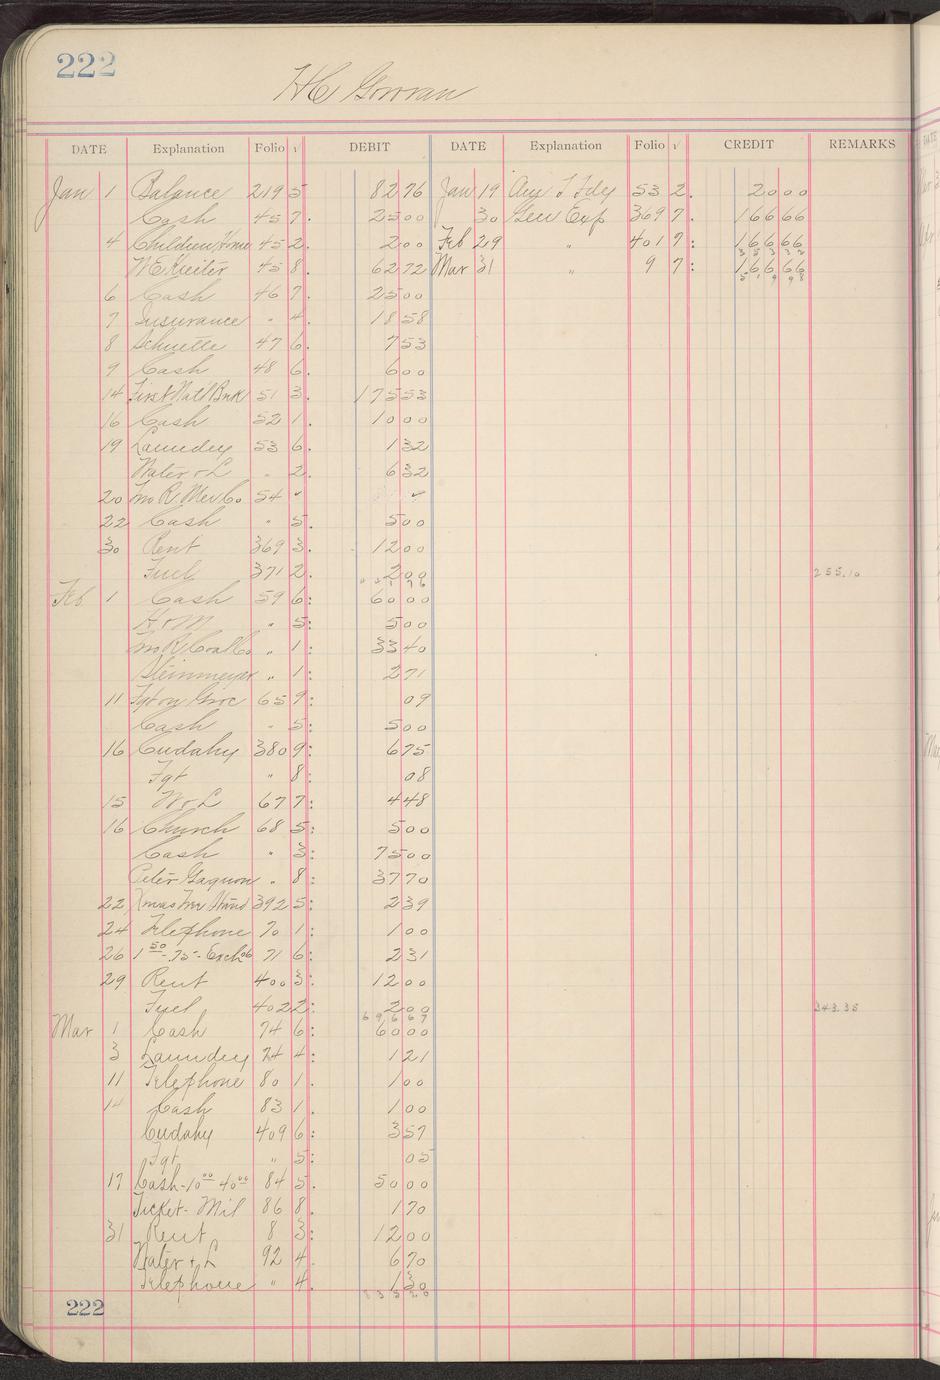 222
HC Gowran
DATE Explanation Folio √ DEBIT DATE Explanation Folio √ CREDIT REMARKS
Jan 1 Balance 219 5 82 76 Jan 19 Aug F Fdly 53 2. 20 00
Cash 45 7. 25 00 30 Gen Exp 369 7. 166 66
4 Children Home 45 2. 2 00 Feb 29 " 401 7: 166 66
W E Kieiter 45 8. 62 72 Mar 31 " 9 7: 166 66
6 Cash 46 7. 25 00
7 Insurance " 4. 18 58
8 Schuette 47 6. 7 53
9 Cash 48 6. 6 00
14 First Natl Bnk 51 3. 175 53
16 Cash 52 1. 10 00
19 Laundry 53 6. 1 32
Water & L " 2. 6 32
20 Jno R. Mer Co 54 ✓ ✓
22 Cash " 5. 5 00
30 Rent 369 3. 12 00
Fuel 371 2. 2 00 255.10
Feb 1 Cash 59 6: 60 00
H & M " 5: 5 00
Jno R Coal Co " 1: 33 40
Steinmeyer " 1: 2 71
11 Fgt on Groc 65 9: 09
Cash " 5: 5 00
16 Cudahy 380 9: 6 75
Fgt " 8: 08
15 W & L 67 7: 4 48
16 Church 68 5: 5 00
Cash " 3: 75 00
Peter Gagnon " 8: 37 70
22 Xmas Tree Stand 392 5: 2 39
24 Telephone 70 1: 1 00
26 1 50 - .75 - Exch 06 71 6: 2 31
29 Rent 400 3: 12 00
Fuel 402 2: 2 00 343.38
Mar 1 Cash 74 6: 60 00
3 Laundry 74 4: 1 21
11 Telephone 80 1. 1 00
14 Cash 83 1. 1 00
Cudahy 409 6: 3 57
Fgt " 5: 05
17 Cash - 10 00 40 00 84 5. 50 00
Ticket - Mil 86 8. 1 70
31 Rent 8 3: 12 00
Water & L 92 4. 6 70
Telephone " 4. 1 30
222